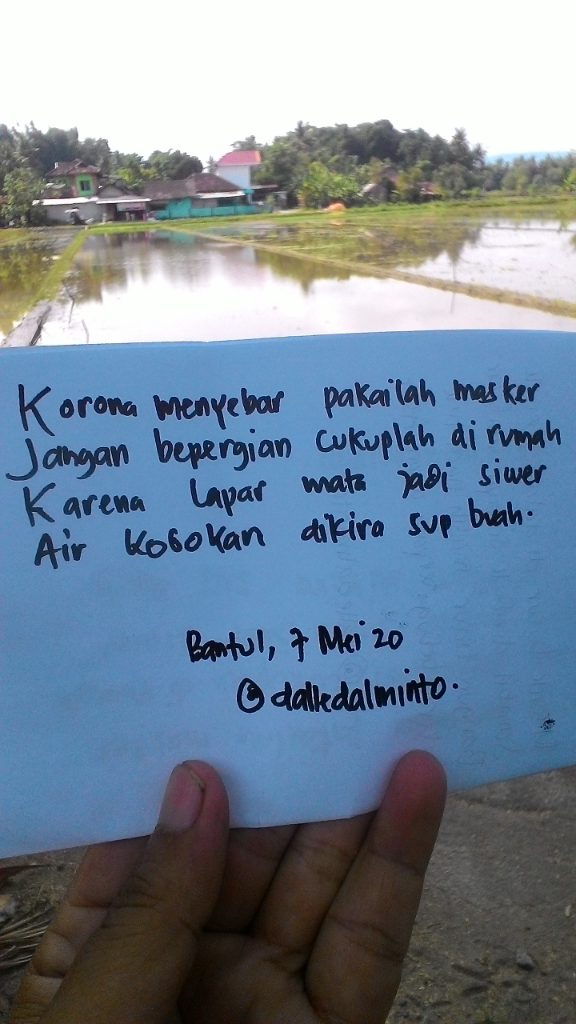 Korona menyebar pakailah masker
Jangan bepergian cukuplah di rumah
Karena lapar mata jadi siwer
Air kobokan dikira sup buah.
Bantul, 7 Mei 20
@dalledalminto.